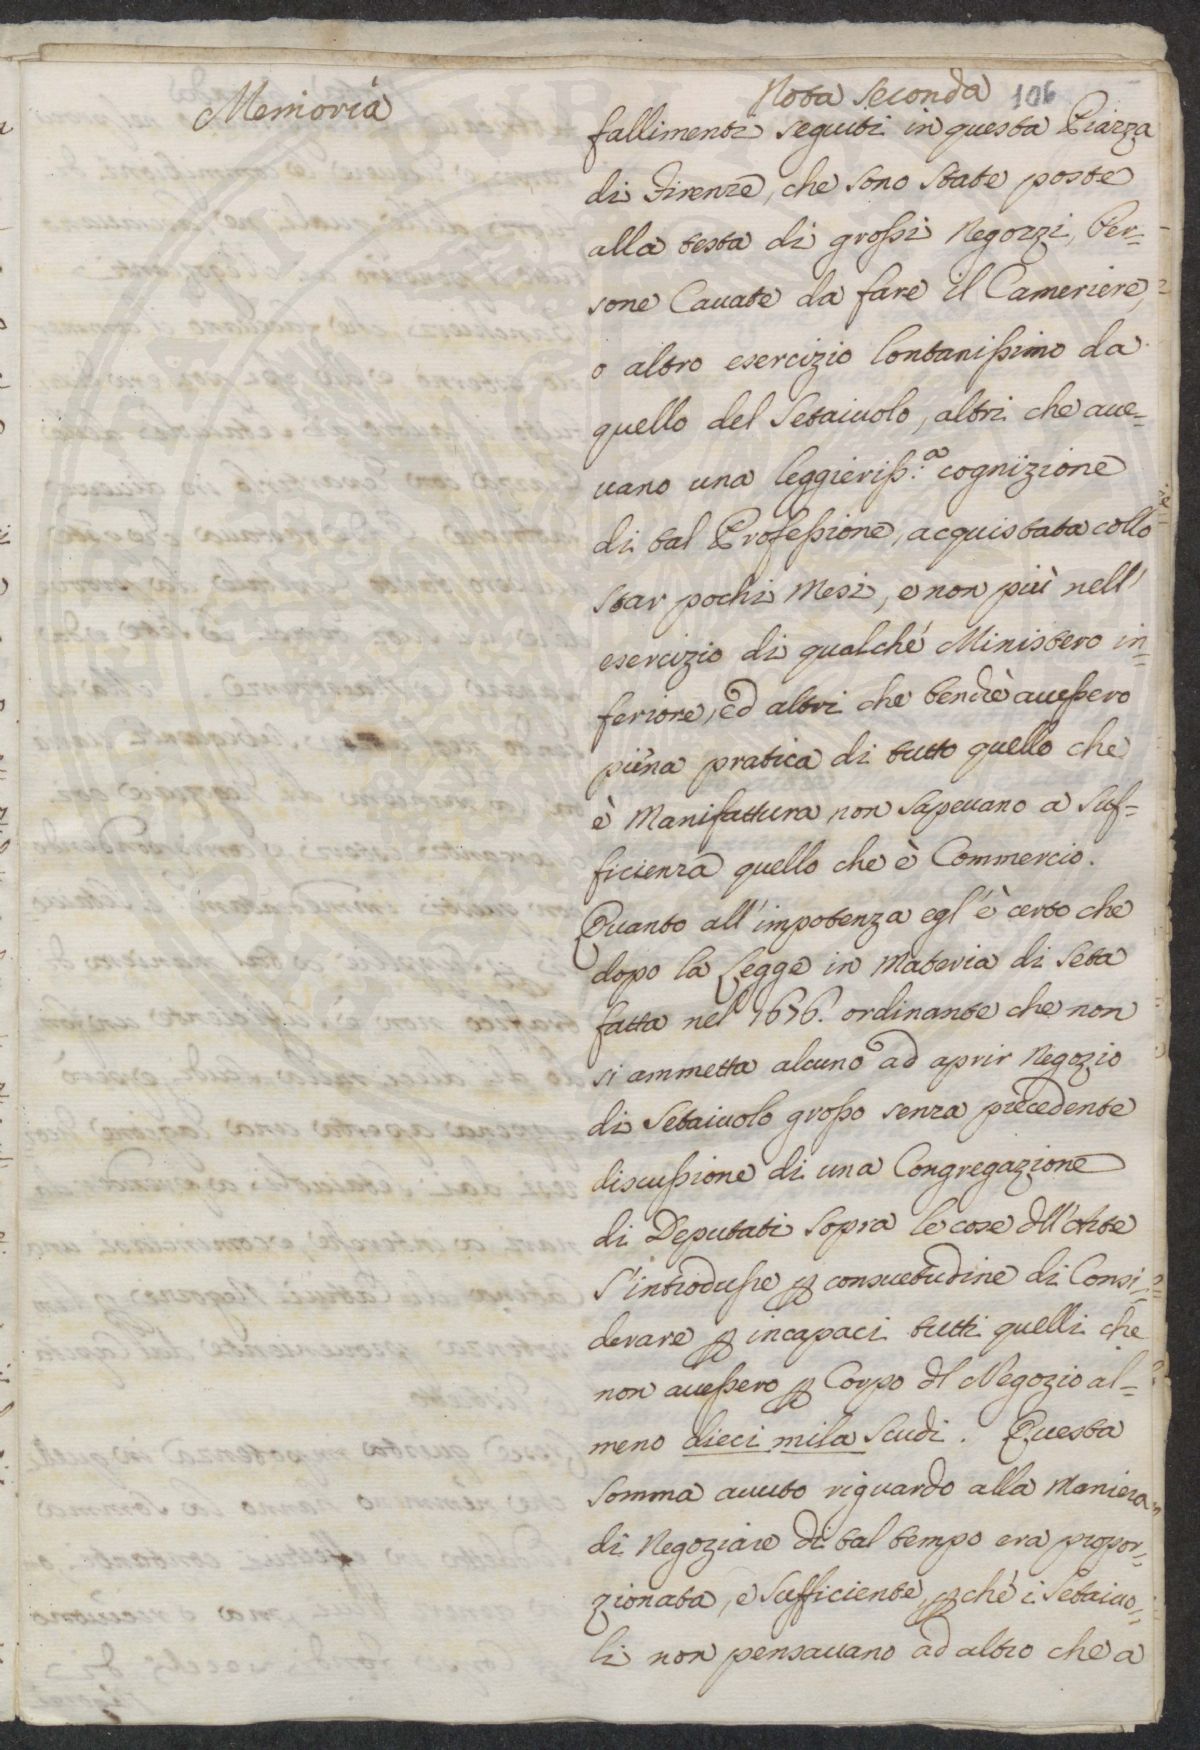 Memoria
Nota Seconda 106
fallimenti seguiti in questa Piazza
di Firenze, che sono state poste
alla testa di grossi Negozzi, Per-
sone Cavate da fare il Cameriere,
o altro esercizio lontanissimo da
quello del Setaiuolo, altri che aue=
uano una leggieriss:ª cognizione
di tal Professione, acquistata collo
star pochi Mesi, e non più nell'
esercizio di qualche Ministero in=
feriore, ed altri che benche auessero
piena pratica di tutto quello che
è Manifattura non sapeuano a suf=
ficienza quello che è Commercio.
Quanto all'impotenza egl'è certo che
dopo la Legge in Materia di Seta
fatta nel 1676. ordinante che non
si ammetta alcuno ad aprir Negozio
di Setaiuolo grosso senza precedente
discussione di una Congregazione
di Deputati sopra le cose dll'Arte
s'introdusse p consuetudine di Consi=
derare p incapaci tutti quelli che
non auessero p Corpo dl Negozio al=
meno dieci mila Scudi. Questa
somma auuto riguardo alla Maniera
di Negoziare di tal tempo era propor=
zionata, e sufficiente, pchè i Setaiuo=
li non pensauano ad altro che a